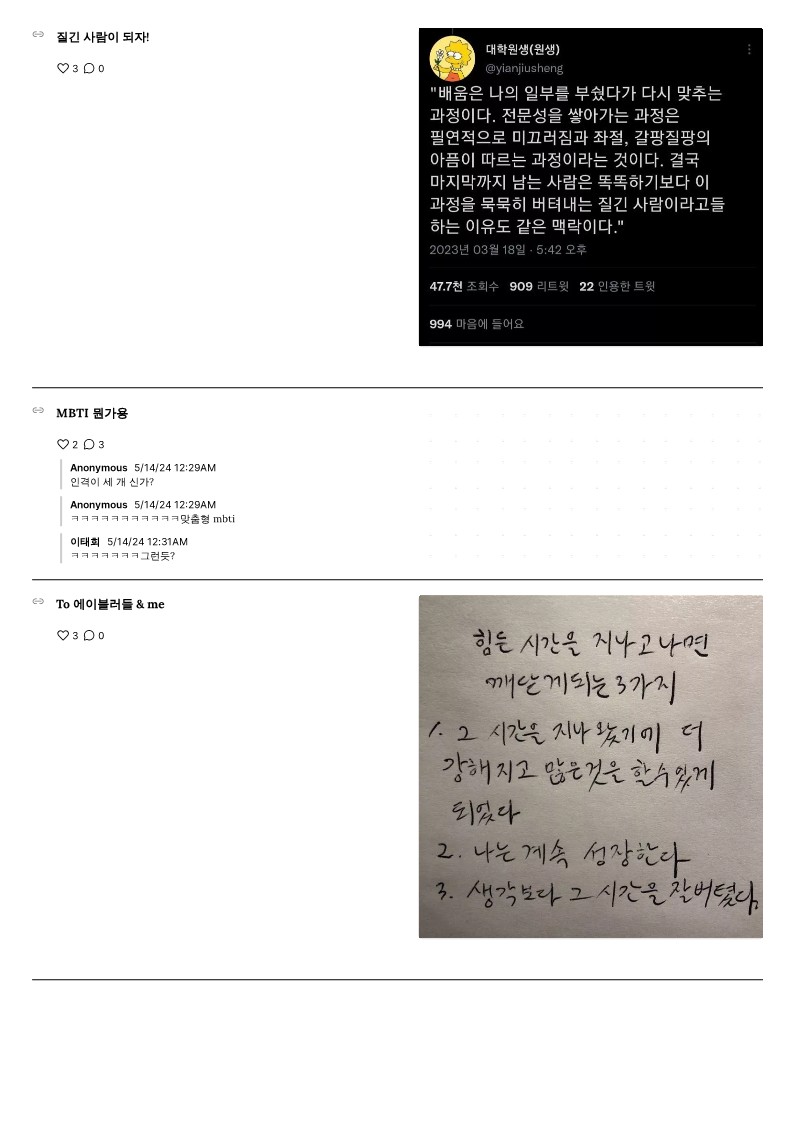 질긴 사람이 되자!
3 0
대학원생(원생)
@yianjiusheng
"배움은 나의 일부를 부쉈다가 다시 맞추는
과정이다. 전문성을 쌓아가는 과정은
필연적으로 미끄러짐과 좌절, 갈팡질팡의
아픔이 따르는 과정이라는 것이다. 결국
마지막까지 남는 사람은 똑똑하기보다 이
과정을 묵묵히 버텨내는 질긴 사람이라고들
하는 이유도 같은 맥락이다."
2023년 03월 18일 · 5:42 오후
47.7천 조회수 909 리트윗 22 인용한 트윗
994 마음에 들어요
MBTI 뭔가용
2 3
Anonymous 5/14/24 12:29AM
인격이 세 개 신가?
Anonymous 5/14/24 12:29AM
ㅋㅋㅋㅋㅋㅋㅋㅋㅋㅋㅋ맞춤형 mbti
이태희 5/14/24 12:31AM
ㅋㅋㅋㅋㅋㅋㅋ그런듯?
To 에이블러들 & me
3 0
힘든 시간을 지나고나면
깨닫게되는 3가지
1. 그 시간을 지나왔기에 더
강해지고 많은것을 할수있게
되었다
2. 나는 계속 성장한다
3. 생각보다 그 시간을 잘버텼다.